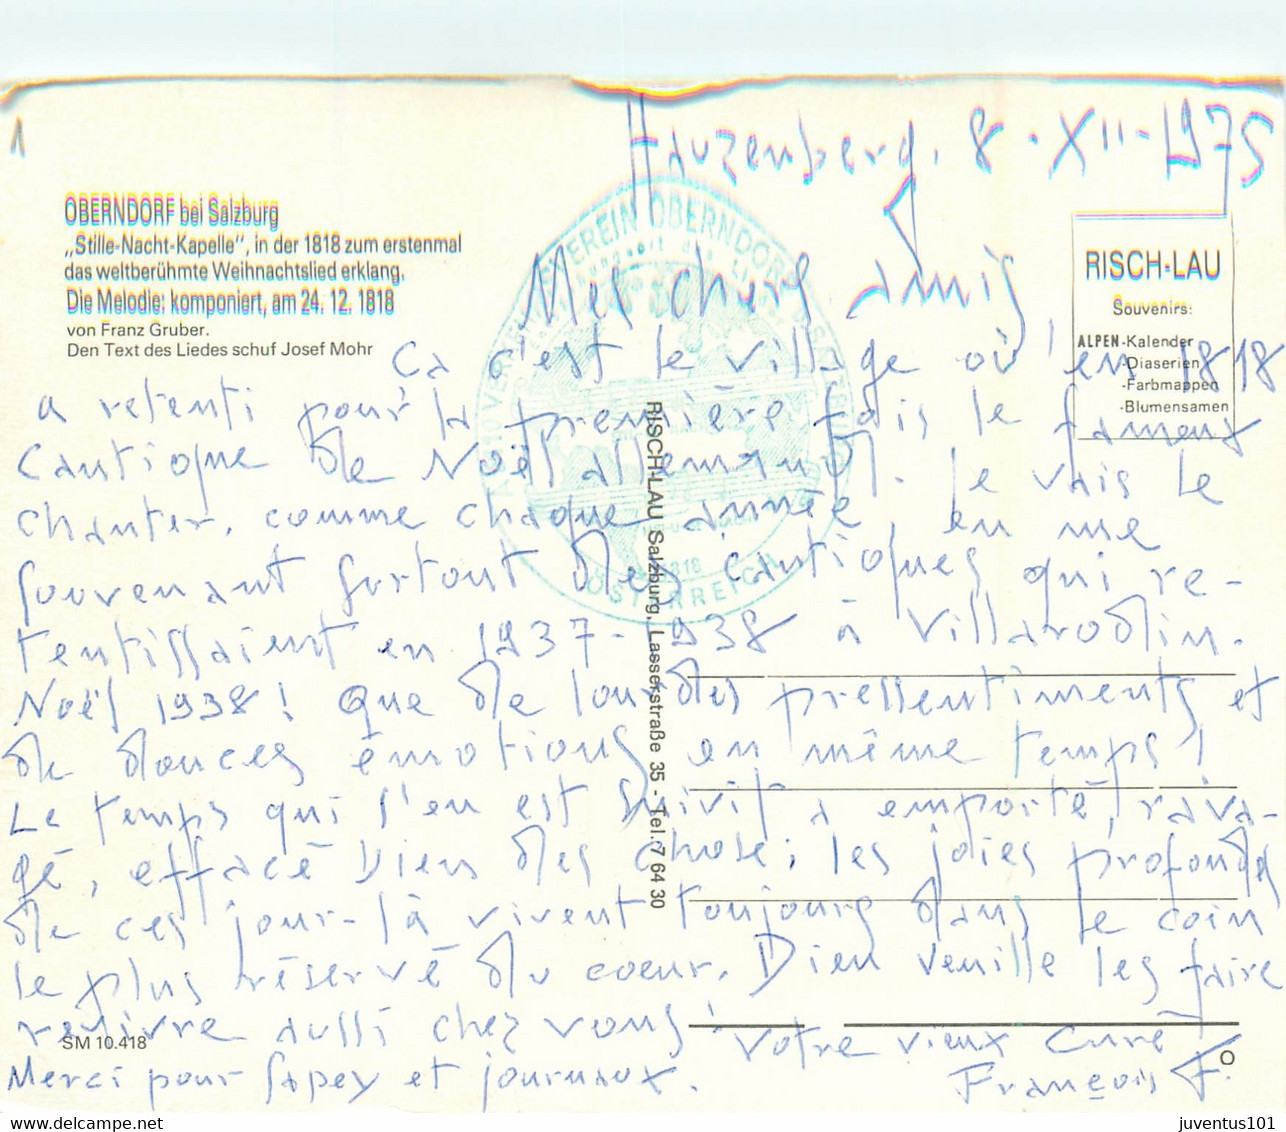 1
Hauzenberg, 8-XII-1975
OBERNDORF bei Salzburg
„Stille-Nacht-Kapelle“, in der 1818 zum erstenmal
das weltberühmte Weihnachtslied erklang.
Die Melodie: komponiert, am 24. 12. 1818
von Franz Gruber.
Den Text des Liedes schuf Josef Mohr
RISCH-LAU
Souvenirs:
ALPEN-Kalender
-Diaserien
-Farbmappen
-Blumensamen
VEREIN OBERNDORF
1818
ÖSTERREICH
Mes chers Amis,
Ça c'est le village où en 1818
a retenti pour la première fois le fameux
Cantique de Noël allemand. Je vais le
chanter, comme chaque année, en me
souvenant surtout des cantiques qui re-
tentissaient en 1937-1938 à Villarodin.
Noël 1938! Que de lourdes pressentiments et
de douces émotions en même temps!
Le temps qui s'en est suivit a emporté, rava-
gé, effacé bien des chose; les joies profondes
de ces jour-là vivent toujours dans le coin
le plus réservé du coeur. Dieu veuille les faire
revivre aussi chez vous!
Votre vieux Curé
François F.
Merci pour et journaux.
RISCH-LAU Salzburg, Lasserstraße 35 - Tel. 7 64 30
SM 10.418
O
juventus101